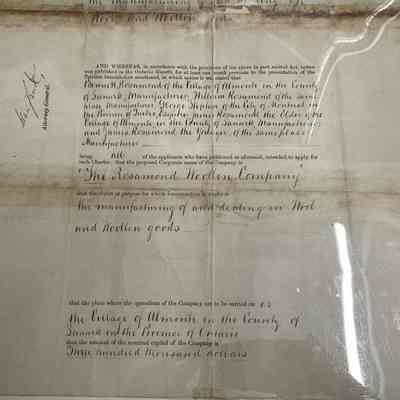 the manufacturing
Wool and Woollen
AND WHEREAS, in accordance with the provisions of the above in part recited Act, notice
was published in the Ontario Gazette, for at least one month previous to the presentation of the
Petition hereinbefore mentioned, in which notice it was stated that
Bennett Rosamond of the Village of Almonte in the County
of Lanark, Manufacturer, William Rosamond of the same
place Manufacturer George Stephen of the City of Montreal in
the Province of Quebec, Esquire James Rosamond the Elder of the
Village of Almonte in the County of Lanark Manufacturer
and James Rosamond the Younger of the same place
Manufacturer
being all of the applicants who have petitioned as aforesaid, intended to apply for
such Charter, that the proposed Corporate name of the Company is
"The Rosamond Woollen Company"
that the object or purpose for which Incorporation is sought is
the manufacturing of and dealing in Wool
and Woollen goods
that the place where the operations of the Company are to be carried on is
the Village of Almonte in the County of
Lanark in the Province of Ontario
that the amount of the nominal capital of the Company is
Three hundred thousand dollars
Attorney General.